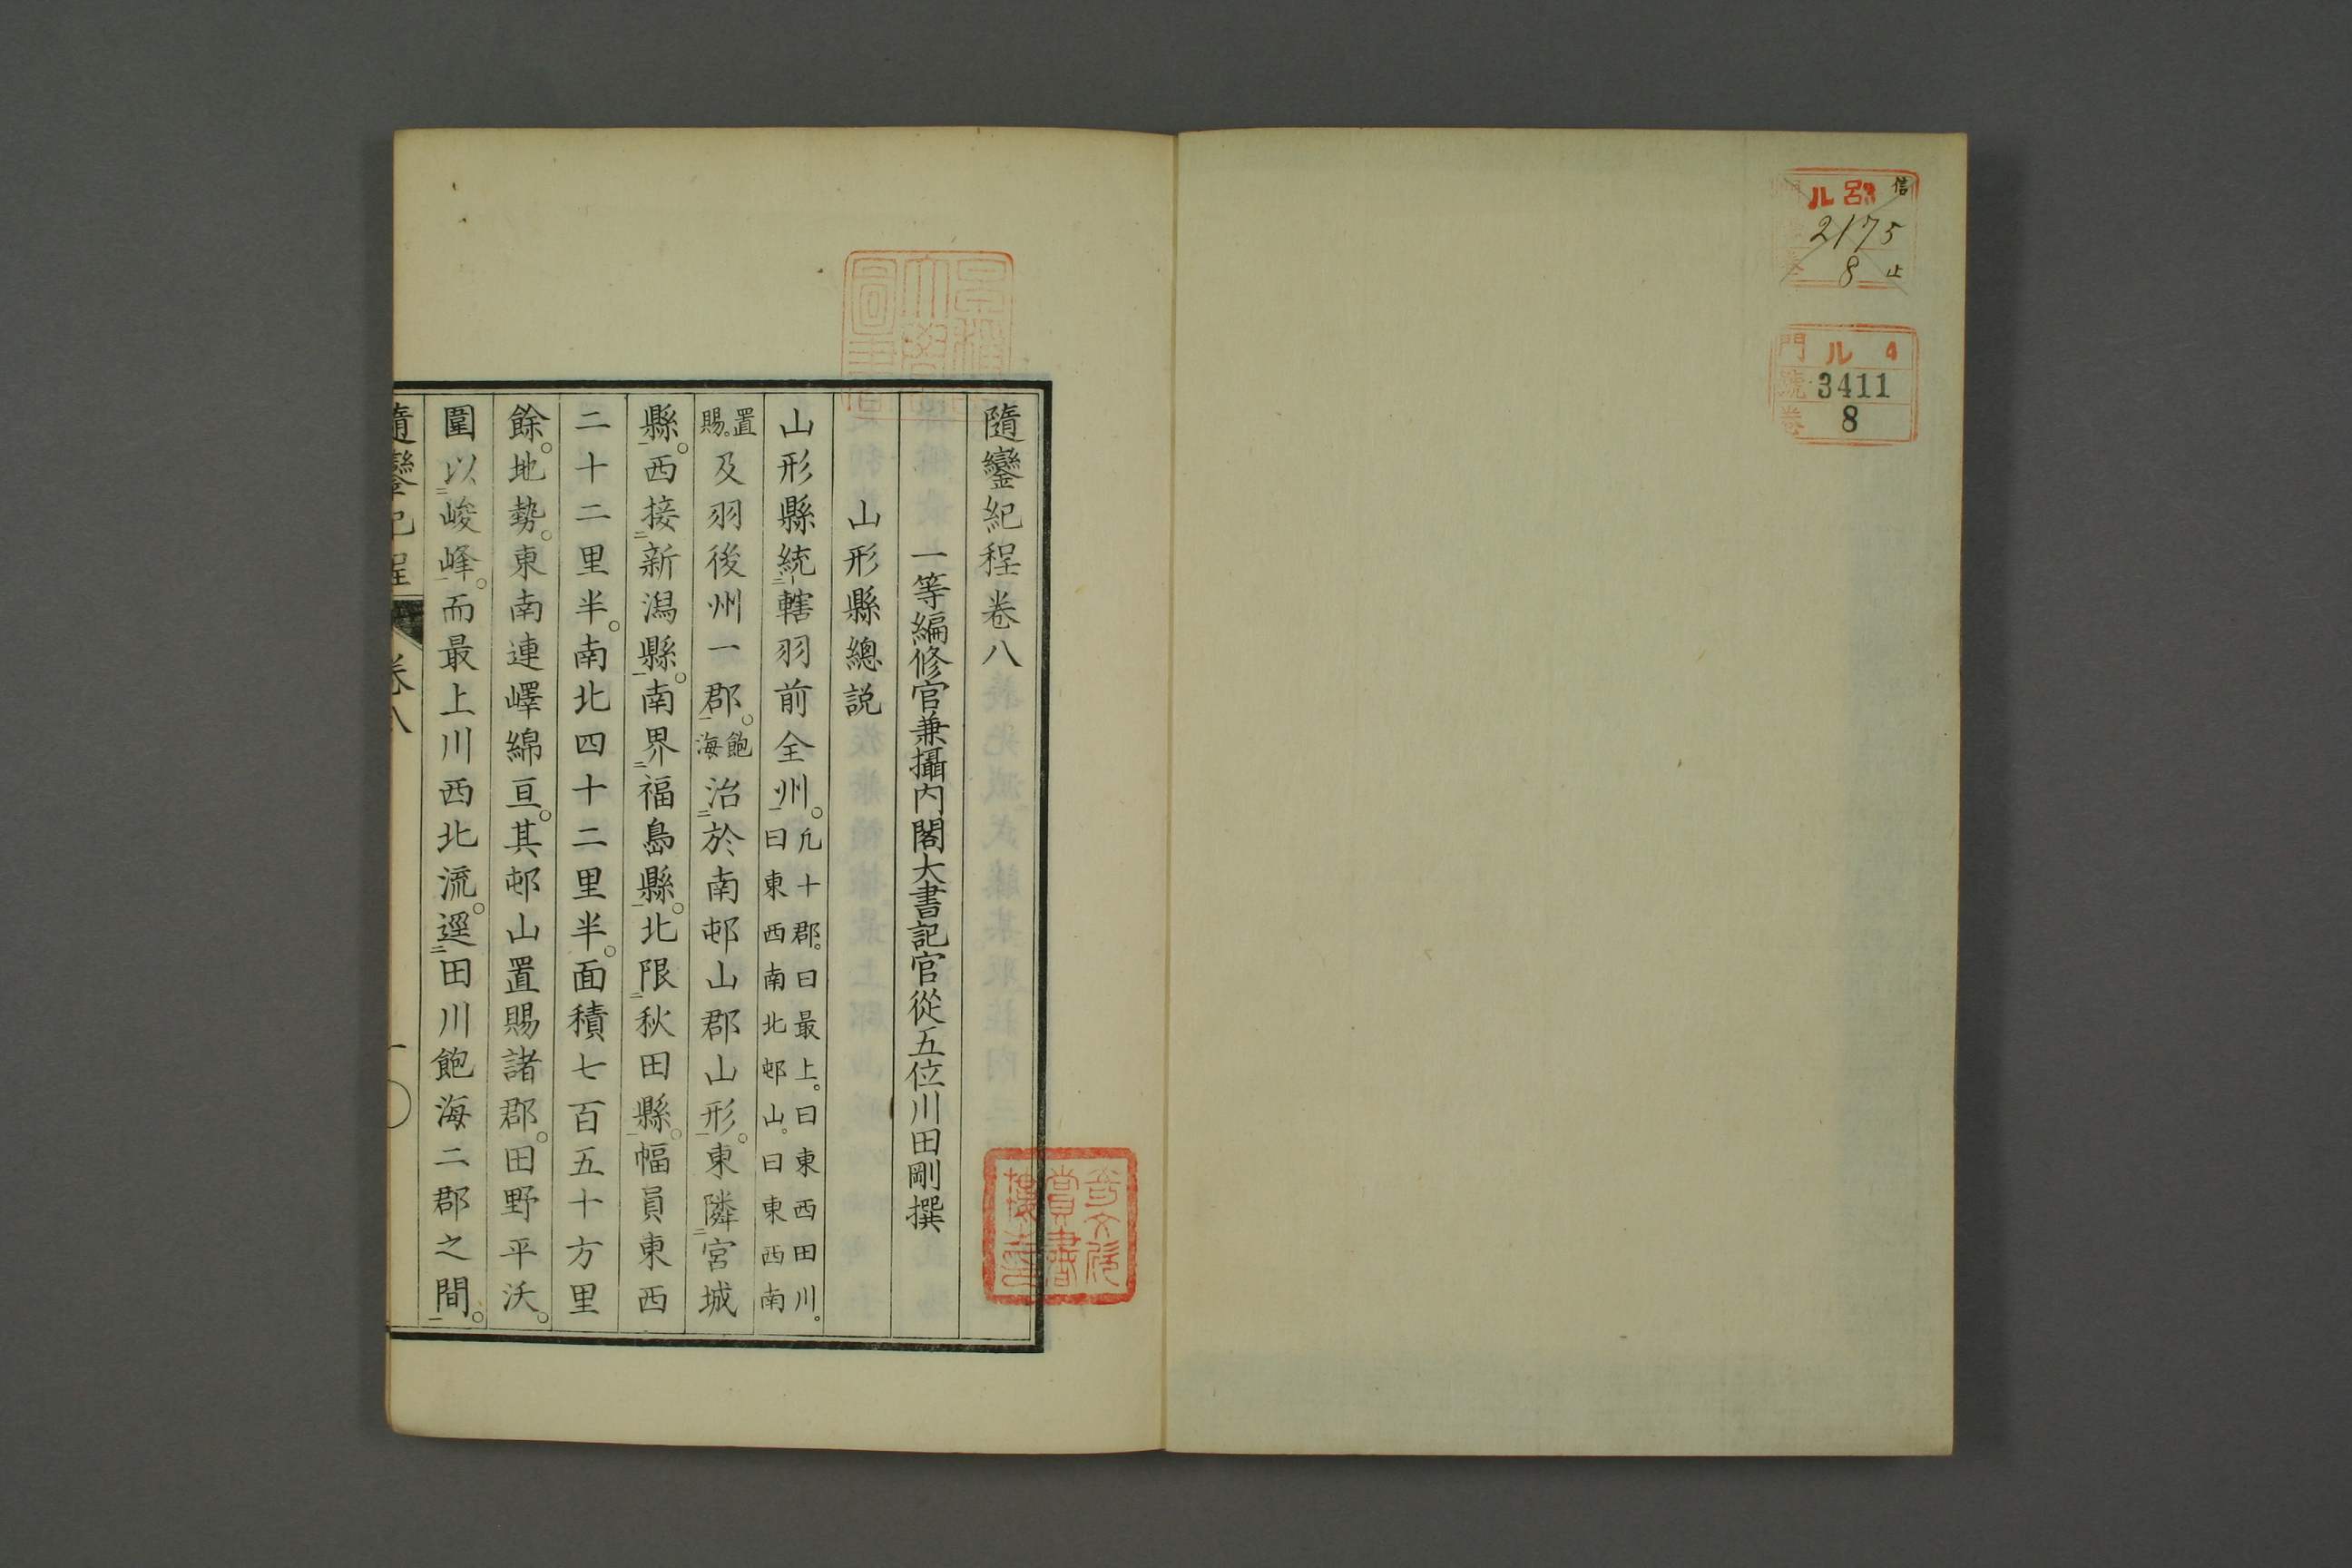 信
ル 呂3
2175
8 止
門 ル 4
號 3411
卷 8
隨鑾紀程卷八
一等編修官兼攝内閣大書記官從五位川田剛撰
山形縣總説
山形縣統二轄羽前全州一。凡十郡。曰最上。曰東西田川。曰東西南北邨山。曰東西南
置賜。及羽後州一郡一。飽海治二於南邨山郡山形一。東隣二宮城
縣一。西接二新潟縣一。南界二福島縣一。北限二秋田縣一。幅員東西
二十二里半。南北四十二里半。面積七百五十方里
餘。地勢。東南連嶧綿亘。其邨山置賜諸郡。田野平沃。
圍以二峻峰一。而最上川西北流。逕二田川飽海二郡之間一。
隨鑾紀程 卷八 一